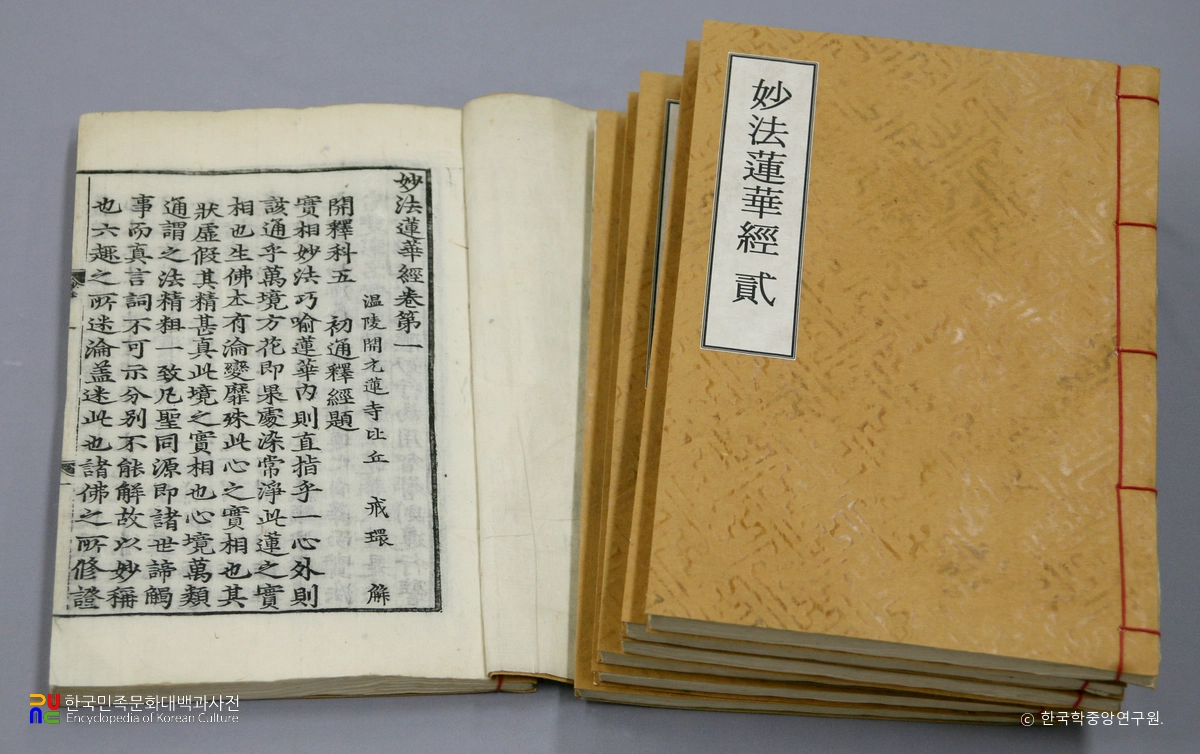 妙法蓮華經卷第一
温陵開元蓮寺比丘 戒環 解
開釋科五 初通釋經題
實相妙法巧喻蓮華内則直指乎一心外則
該通乎萬境方花即果處染常淨此蓮之實
相也生佛本有淪變靡殊此心之實相也其
狀虛假其精甚真此境之實相也心境萬類
通謂之法精粗一致凡聖同源即諸世諦觸
事而真言詞不可示分别不能解故以妙稱
也六趣之所迷淪盖迷此也諸佛之所修證
妙法蓮華經 貳
한국민족문화대백과사전
Encyclopedia of Korean Culture
ⓒ 한국학중앙연구원.